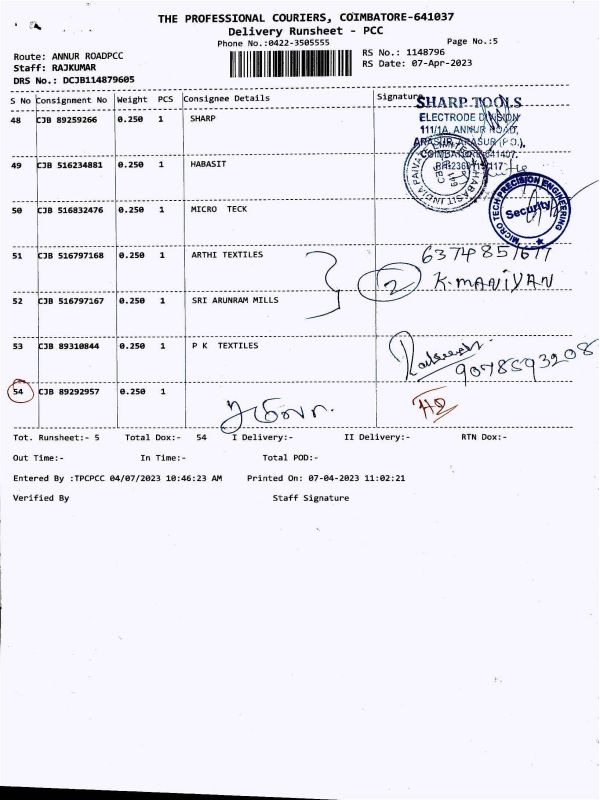 THE PROFESSIONAL COURIERS, COIMBATORE-641037
Delivery Runsheet - PCC
Phone No.:0422-3505555
Page No.:5
Route: ANNUR ROADPCC
RS No.: 1148796
Staff: RAJKUMAR
RS Date: 07-Apr-2023
DRS No.: DCJB114879605
S No Consignment No Weight PCS Consignee Details Signature
SHARP TOOLS
48 CJB 89259266 0.250 1 SHARP
ELECTRODE DIVISION
111/1A, ANNUR ROAD,
ARASUR, ARASUR (P.O.),
COIMBATORE-641407.
49 CJB 516234881 0.250 1 HABASIT
HABASIT INDIA
50 CJB 516832476 0.250 1 MICRO TECK
MICRO TECH PRECISION ENGINEERING
Security
51 CJB 516797168 0.250 1 ARTHI TEXTILES
6374851677
2 K.MANIVAN
52 CJB 516797167 0.250 1 SRI ARUNRAM MILLS
53 CJB 89310844 0.250 1 P K TEXTILES
9078593208
54 CJB 89292957 0.250 1
Tot. Runsheet:- 5 Total Dox:- 54 I Delivery:- II Delivery:- RTN Dox:-
Out Time:- In Time:- Total POD:-
Entered By :TPCPCC 04/07/2023 10:46:23 AM Printed On: 07-04-2023 11:02:21
Verified By Staff Signature